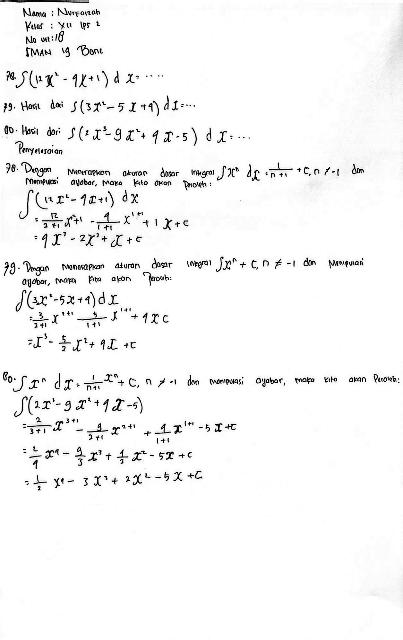 Nama : Nurfaizah
Kelas : XII IPS 2
No urut: 18
SMAN 19 Bone
78. ∫(12x² - 4x + 1) dx = ....
79. Hasil dari ∫(3x² - 5x + 4) dx = ...
80. Hasil dari ∫(2x³ - 9x² + 4x - 5) dx = ...
Penyelesaian
78. Dengan Menerapkan aturan dasar integral ∫xⁿ dx = 1/(n+1) + C, n ≠ -1 dan
Manipulasi aljabar, maka kita akan Peroleh:
∫(12x² - 4x + 1) dx
= 12/(2+1) x²⁺¹ - 4/(1+1) x¹⁺¹ + 1x + c
= 4x³ - 2x² + x + c
79. Dengan Menerapkan aturan dasar integral ∫xⁿ + C, n ≠ -1 dan Manipulasi
aljabar, maka kita akan Peroleh:
∫(3x² - 5x + 4) dx
= 3/(2+1) x²⁺¹ 5/(1+1) x¹⁺¹ + 4x c
= x³ - 5/2 x² + 4x + c
80. ∫xⁿ dx = 1/(n+1) xⁿ + C, n ≠ -1 dan manipulasi aljabar, maka kita akan Peroleh:
∫(2x³ - 9x² + 4x - 5)
= 2/(3+1) x³⁺¹ - 9/(2+1) x²⁺¹ + 4/(1+1) x¹⁺¹ - 5x + c
= 2/4 x⁴ - 9/3 x³ + 4/2 x² - 5x + c
= 1/2 x⁴ - 3x³ + 2x² - 5x + C